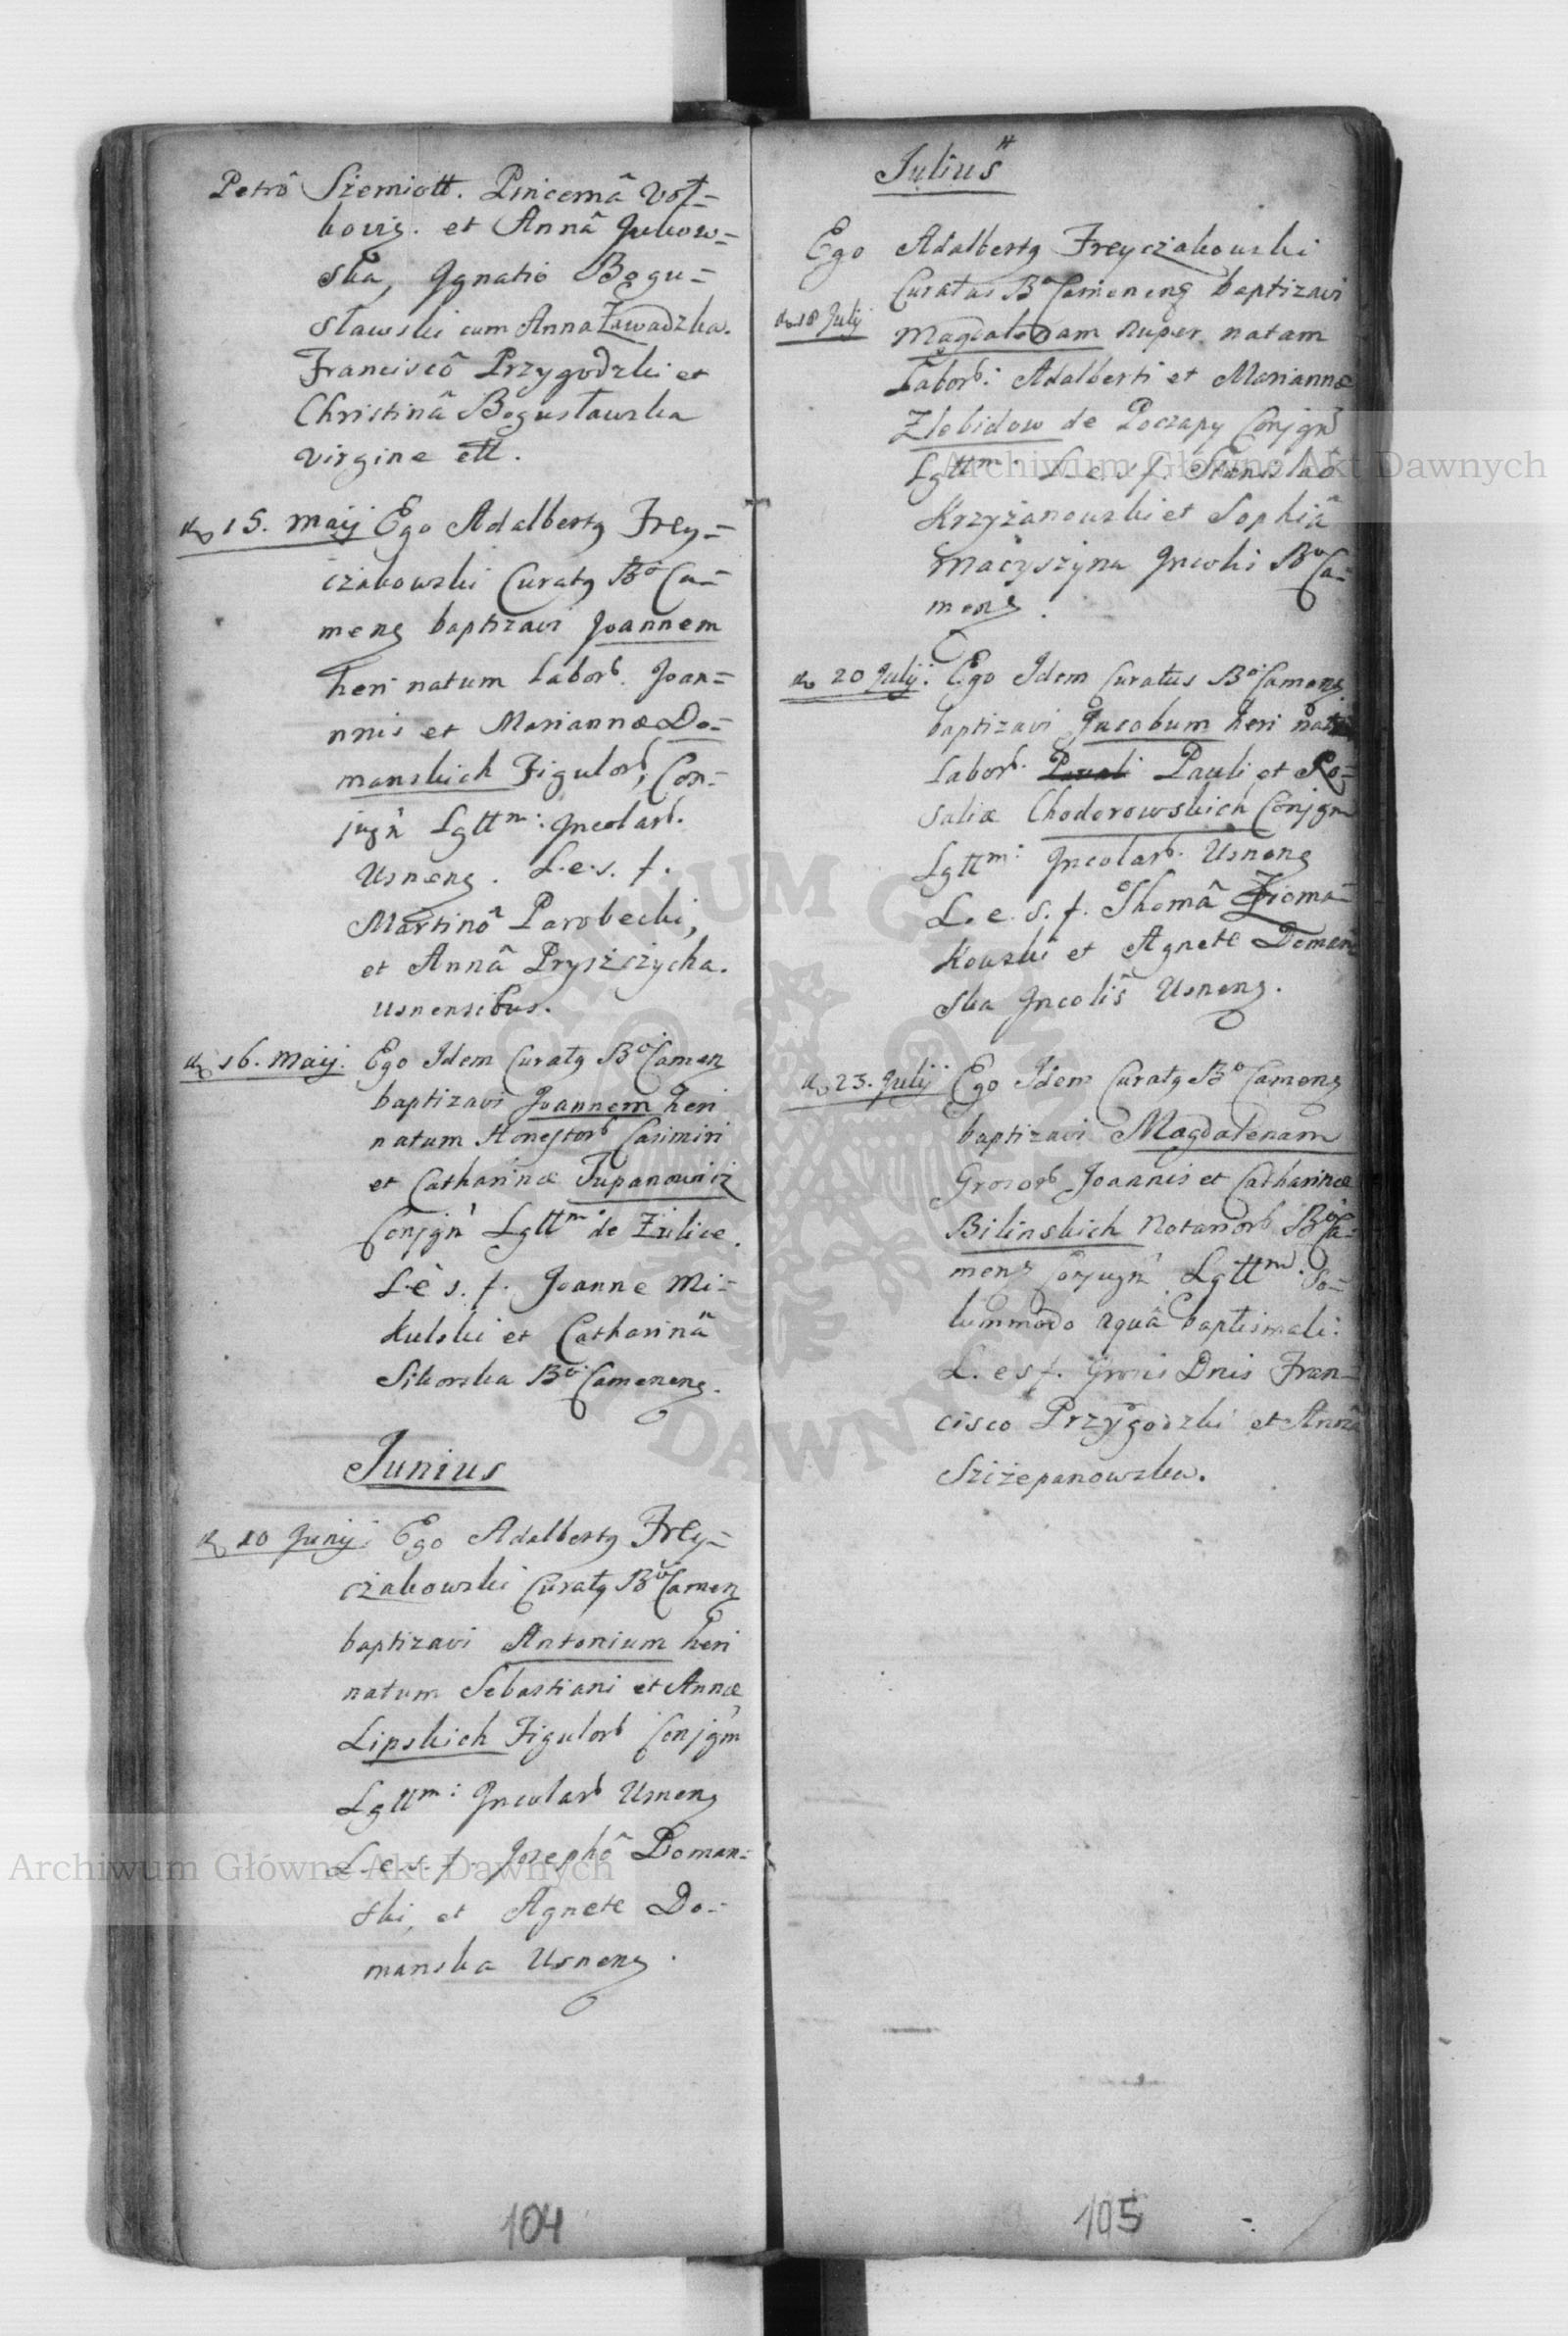 Petrô Sżemiott. Pincernâ Voł=
kovis. et Annâ Jukow=
ska, Jgnatiô Bogu=
sławski cum Anna Zawadzka.
Franciscô Przygodzki et
Christinâ Bogusławska
virgine ett.
d. 15. Maij Ego Adalbertq Frey=
czakowski Curatq Bo Ca=
menς baptizavi Joannem
heri natum Labor. Joan=
nnis et Mariannæ Do=
manskich Figulor, Con=
jugn Lgttm: Jncolar.
Usnenς. L.e.s.f.
Martinô Parobecki,
et Annâ Pryszczycha.
Usnensibus.
d. 16. Maij. Ego Idem Curatq Bo Camen
baptizavi Joannem heri
natum Honestor Casimiri
et Catharinæ Tupanowicz
Conjgn Lgttm: de Zulice.
L.e s. f. Joanne Mi=
kulski et Catharinâ
Sikorska Bo Camenenς.
Junius
d. 10 Junij. Ego Adalbertq Frey=
czakowski Curatq Bo Camen
baptizavi Antonium heri
natum Sebastiani et Annæ
Lipskich Figulor Conjgm
Lgttm: Jncolar Usnenς
L.e.s.f. Josephô Doman=
ski, et Agnete Do=
manska Usnenς.
104
Julius
Ego Adalbertq Freyczakowski
Curatus Bo Camenenς baptizavi
d. 18 Julij Magdalenam nuper natam
Labor: Adalberti et Mariannæ
Zlobidow de Poczapy Conjgn
Lgttm: L.e.s f. Stanislaô
Krzyżanowski et Sophiâ
Maćyszyna Jncolis Bo Ca=
menς.
d. 20 Julij: Ego Idem Curatus Bo Camenς
baptizavi Jacobum heri
Labor. Pauli et Ro=
saliæ Chodorowskich Conjgm
Lgttm: Jncolar. Usnenς
L.e.s.f. Thomâ Zioma=
kowski et Agnete Doman
ska Jncolis Usnenς.
d. 23. Julij Ego Idem Curatq Bo Camenς
baptizavi Magdalenam
Gror Joannis et Catharinæ
Bilinskich Notarior Bo Ca=
menς Conjugn Lgttm. So=
lummodo aquâ baptismali:
L.e s f. Dnis Fran=
cisco Przygodzki et Annâ
Szczepanowska.
105
Archiwum Główne Akt Dawnych
Archiwum Główne Akt Dawnych
ARCHIWUM GŁÓWNE
AKT DAWNYCH